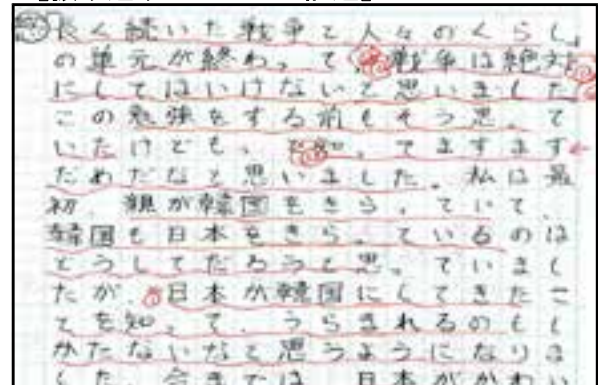 長く続いた戦争と人々のくらし」
の単元が終わって、戦争は絶対
にしてはいけないと思いました
この勉強をする前もそう思って
いたけども、と知ってますます
だめだなと思いました。私は最
初、親が韓国をきらっていて、
韓国も日本をきらっているのは
どうしてだろうと思っていまし
たが、日本が韓国にしてきたこ
とを知って、うらまれるのもし
かたないなと思うようになりま
した。今までは、日本がかわい